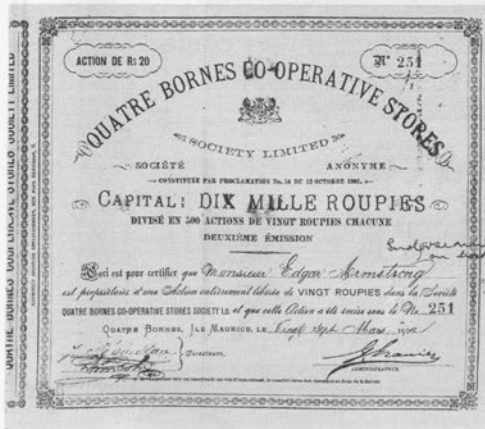 ACTION DE Rs 20
No 251
QUATRE BORNES CO-OPERATIVE STORES
SOCIETY LIMITED
SOCIÉTÉ ANONYME
CONSTITUÉE PAR PROCLAMATION No. 56 DU 12 OCTOBRE
CAPITAL: DIX MILLE ROUPIES
DIVISÉ EN 500 ACTIONS DE VINGT ROUPIES CHACUNE
DEUXIÈME ÉMISSION
Ceci est pour certifier que Monsieur Edgar Armstrong
est propriétaire d'une Action entièrement libérée de VINGT ROUPIES dans la Société
QUATRE BORNES CO-OPERATIVE STORES SOCIETY Ld et que cette Action a été émise sous le No. 251
QUATRE BORNES, ILE MAURICE, LE Vingt Sept Mars
Directeurs.
ADMINISTRATEUR.
QUATRE BORNES COOPERATIVE STORES SOCIETY LIMITED